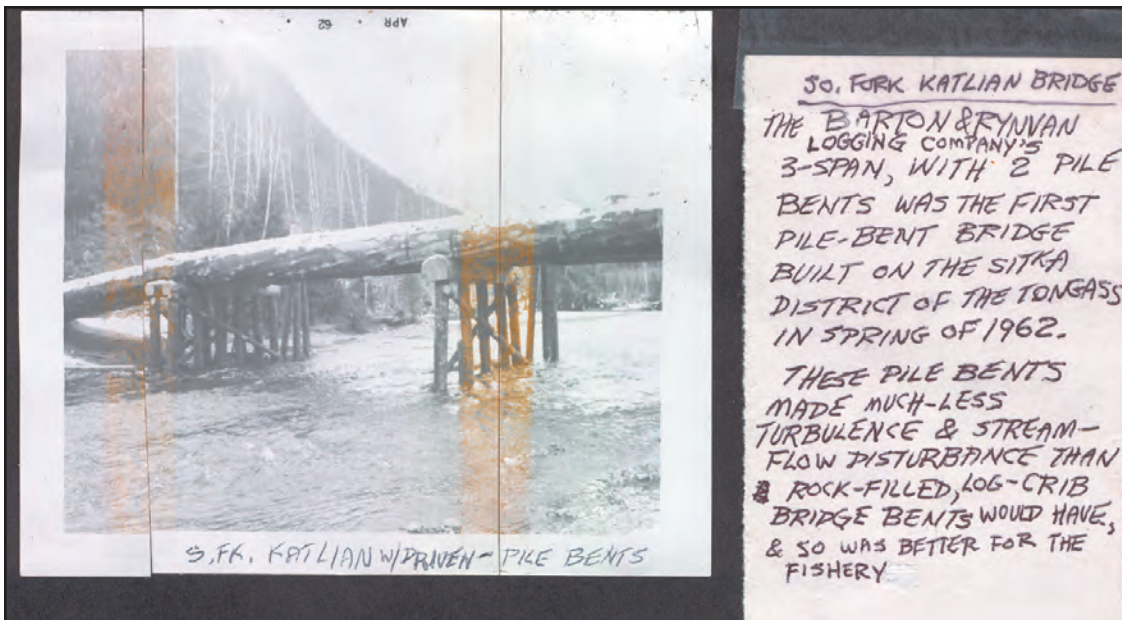 APR • 62 •
S. FK. KATLIAN W/DRIVEN- PILE BENTS
SO. FORK KATLIAN BRIDGE
THE BARTON & RYNVAN
LOGGING COMPANY'S
3-SPAN, WITH 2 PILE
BENTS WAS THE FIRST
PILE-BENT BRIDGE
BUILT ON THE SITKA
DISTRICT OF THE TONGASS
IN SPRING OF 1962.
THESE PILE BENTS
MADE MUCH-LESS
TURBULENCE & STREAM-
FLOW DISTURBANCE THAN
ROCK-FILLED, LOG-CRIB
BRIDGE BENTS WOULD HAVE,
& SO WAS BETTER FOR THE
FISHERY